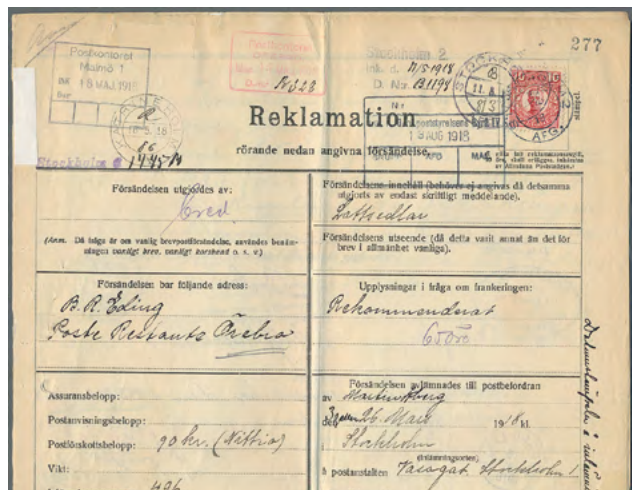 277
Postkontoret
Malmö 1
Ink 18 MAJ 1918
Postkontoret
D.nr 328
Stockholm 2
Ink. d. 11/5 1918
D. Nr. B1198
STOCKHOLM 2
AFG.
10 10
KATRINEHOLM
Reklamation
19 AUG 1918
rörande nedan angivna försändelse.
Stockholm
Försändelsen utgjordes av:
bred
(Anm. Då fråga är om vanlig brevpostförsändelse, användes benäm-
ningen vanligt brev, vanligt korsband o. s. v.)
Försändelsens innehåll (behöver ej angivas då detsamma
utgjorts av endast skriftligt meddelande).
Lottsedlar
Försändelsens utseende (då detta varit annat än det för
brev i allmänhet vanliga).
Försändelsen bar följande adress:
B. R. Eding
Poste Restante Örebro
Upplysningar i fråga om frankeringen:
Rekommenderat
65 öre
Assuransbelopp:
Postanvisningsbelopp:
Postförskottsbelopp: 90 kr. (Nittio)
Vikt:
496
Försändelsen avlämnades till postbefordran
av Martin Åberg
den 26 Mars 1918 kl.
i Stockholm
(Inlämningsorten)
å postanstalten Vasagat. Stockholm 1